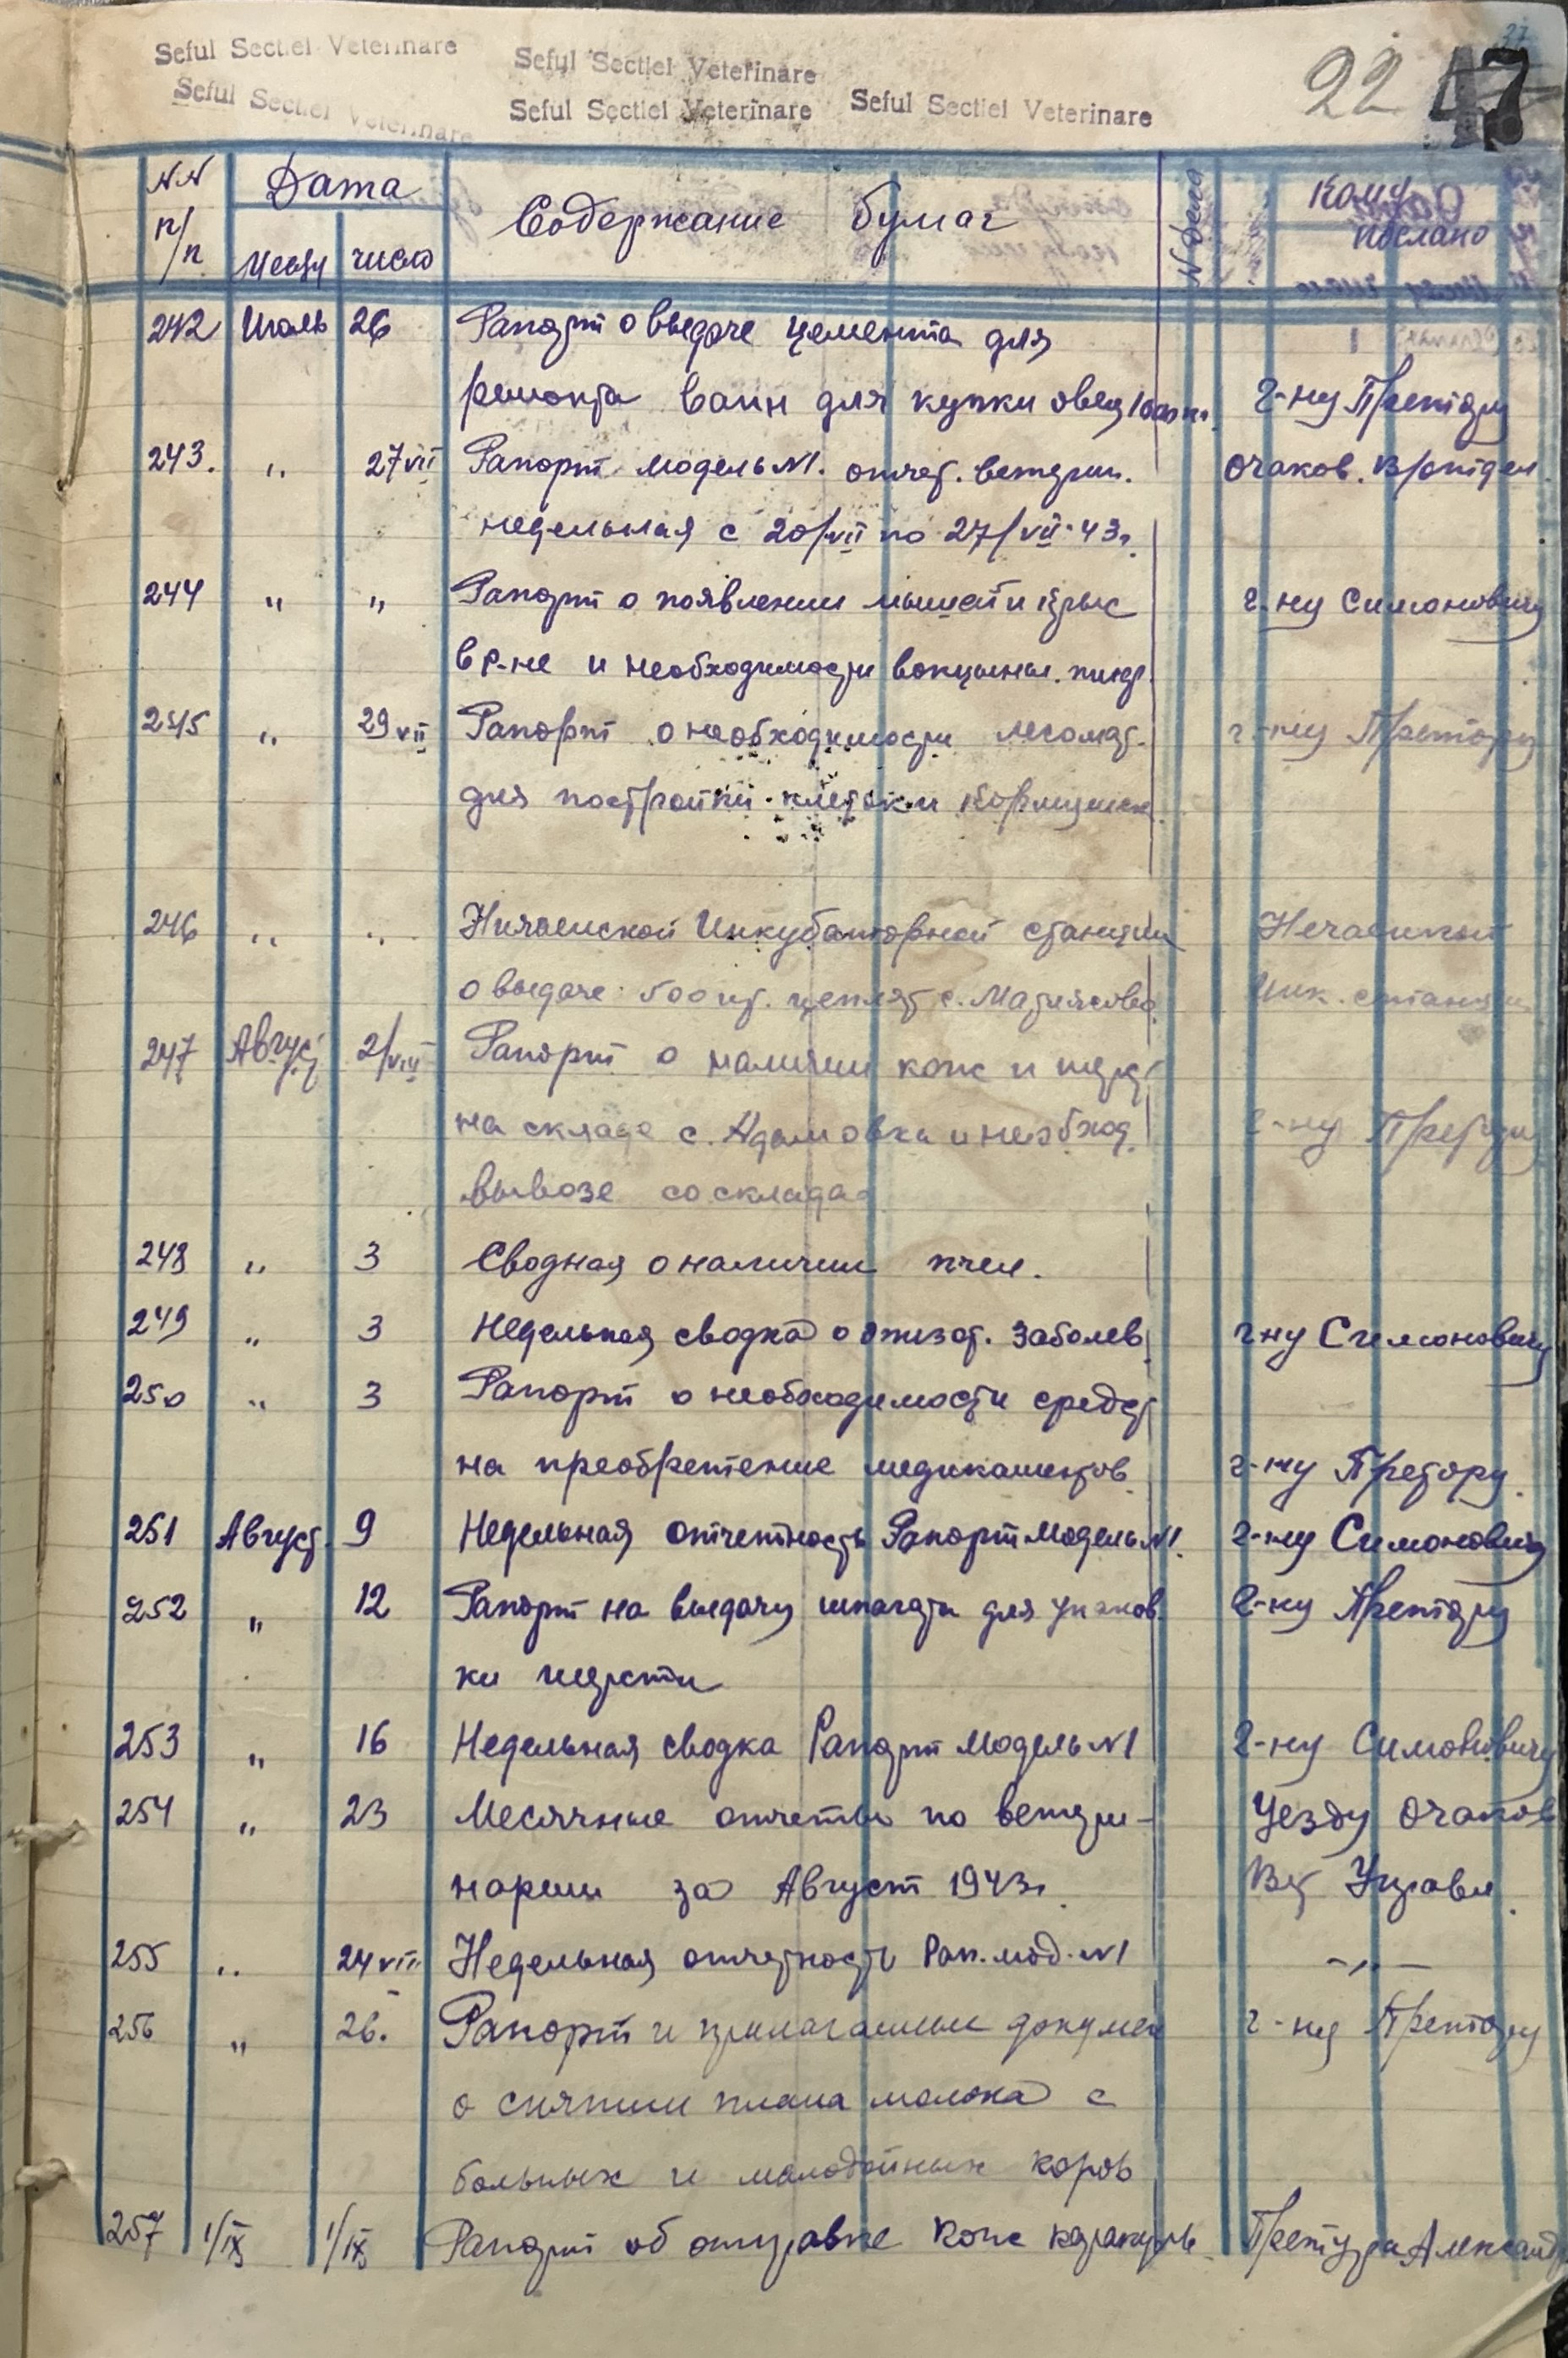 Seful Sectiei Veterinare Seful Sectiei Veterinare
Seful Sectiei Veterinare Seful Sectiei Veterinare Seful Sectiei Veterinare
22 47
NN п/п Дата Содержание бумаг N дела Кому послано
месяц число
242 Июль 26 Рапорт о выдаче цемента для
ремонта ванн для купки овец г-ну Претору
243. " 27 VII Рапорт модель N1. отчет. ветерин. Очаков. В/отдел
недельная с 20/VII по 27/VII-43г.
244 " " Рапорт о появлении мышей и крыс г-ну Симоновичу
в р-не и необходимости
245 " 29 VII Рапорт о необходимости лесомат. г-ну Претору
для постройки клеток и кормушек
246 " " Нечаенской Инкубаторной станции Нечаенской
о выдаче 500 шт. цеплят с. Матиясово Инк. станции
247 Август 2/VIII Рапорт о наличии кож и шерст
на складе с. Адамовка и необход. г-ну Претору
вывозе со склада
248 " 3 Сводная о наличии пчел.
249 " 3 Недельная сводка о эпизот. заболев. г-ну Симоновичу
250 " 3 Рапорт о необходимости средст
на преобретение медикаментов г-ну Претору.
251 Август. 9 Недельная отчетность Рапорт Модель N1. г-ну Симоновичу
252 " 12 Рапорт на выдачу шпагата для упаков г-ну Претору
ки шерсти
253 " 16 Недельная сводка Рапорт Модель N1 г-ну Симоновичу
254 " 23 Месячные отчеты по ветери- Уезду Очаков
нарии за Август 1943г. Вет Управл.
255 " 24 VIII Недельная отчетность Рап. мод. N1 -"-
256 " 26. Рапорт и прилагаемые докумен г-ну Претору
о снятии плана молока с
больных и малодойных коров
257 1/IX 1/IX Рапорт об отправке кож каракуль Претура Александ